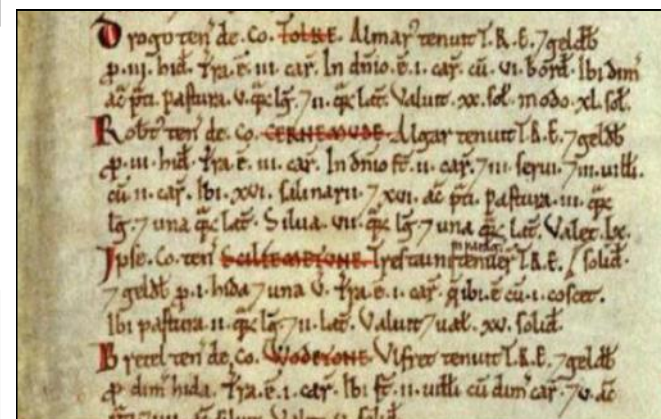 Drogo ten̄ de. Co. TOLRE. Almar̄ tenuit T.R.E. 7 geldb̄
p. iii. hid. T̄ra.ē. iii. car̄. In dn̄io.ē.i. car̄. cū. vi. bord̄. Ibi dim̄
ac̄ p̄ti. Pastura. v. q̄ꝫ lḡ. 7 ii. q̄ꝫ lat̄. Valuit. xx. sol̄. modo. xl. sol̄.
Robt̄ ten̄ de. Co. CERNEMUDE. Algar tenuit T.R.E. 7 geldb̄
p. iii. hid̄. T̄ra.ē. iii. car̄. In dn̄io st̄. ii. car̄. 7 iii. serui. 7 iii. uilli.
cū ii. car̄. Ibi. xvi. salinarii. 7 xvi. ac̄ p̄ti. Pastura. iii. q̄ꝫ
lḡ. 7 una q̄ꝫ lat̄. Silua. vii. q̄ꝫ lḡ. 7 una q̄ꝫ lat̄. Valet. lx.
Ipse. Co. ten̄ Tres tauni tenuer̄ T.R.E. / solid̄.
7 geldb̄ p. i. hida 7 una v. T̄ra.ē.i. car̄. q̄ ibi.ē cū.i. coscet.
Ibi pastura. ii. q̄ꝫ lḡ. 7 ii. lat̄. Valuit 7 ual̄. xv. solid̄.
Bretel ten̄ de. Co. WODETONE. Vlfret tenuit T.R.E. 7 geldb̄
p dim̄ hida. T̄ra.ē.i. car̄. Ibi st̄. ii. uilli cū dim̄ car̄. 7 v. ac̄